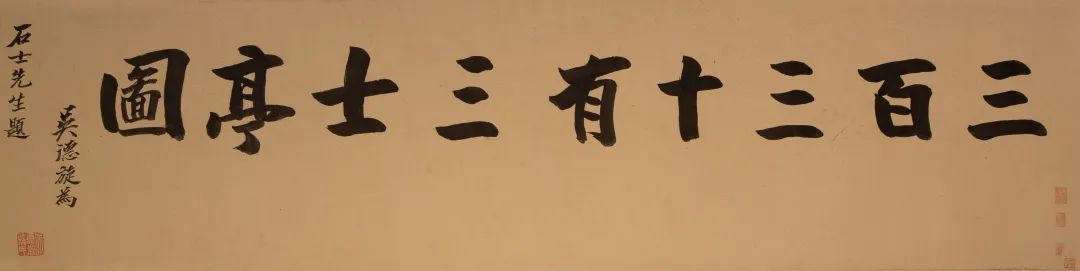 三百三十有三士亭圖
吴德旋為
石士先生題